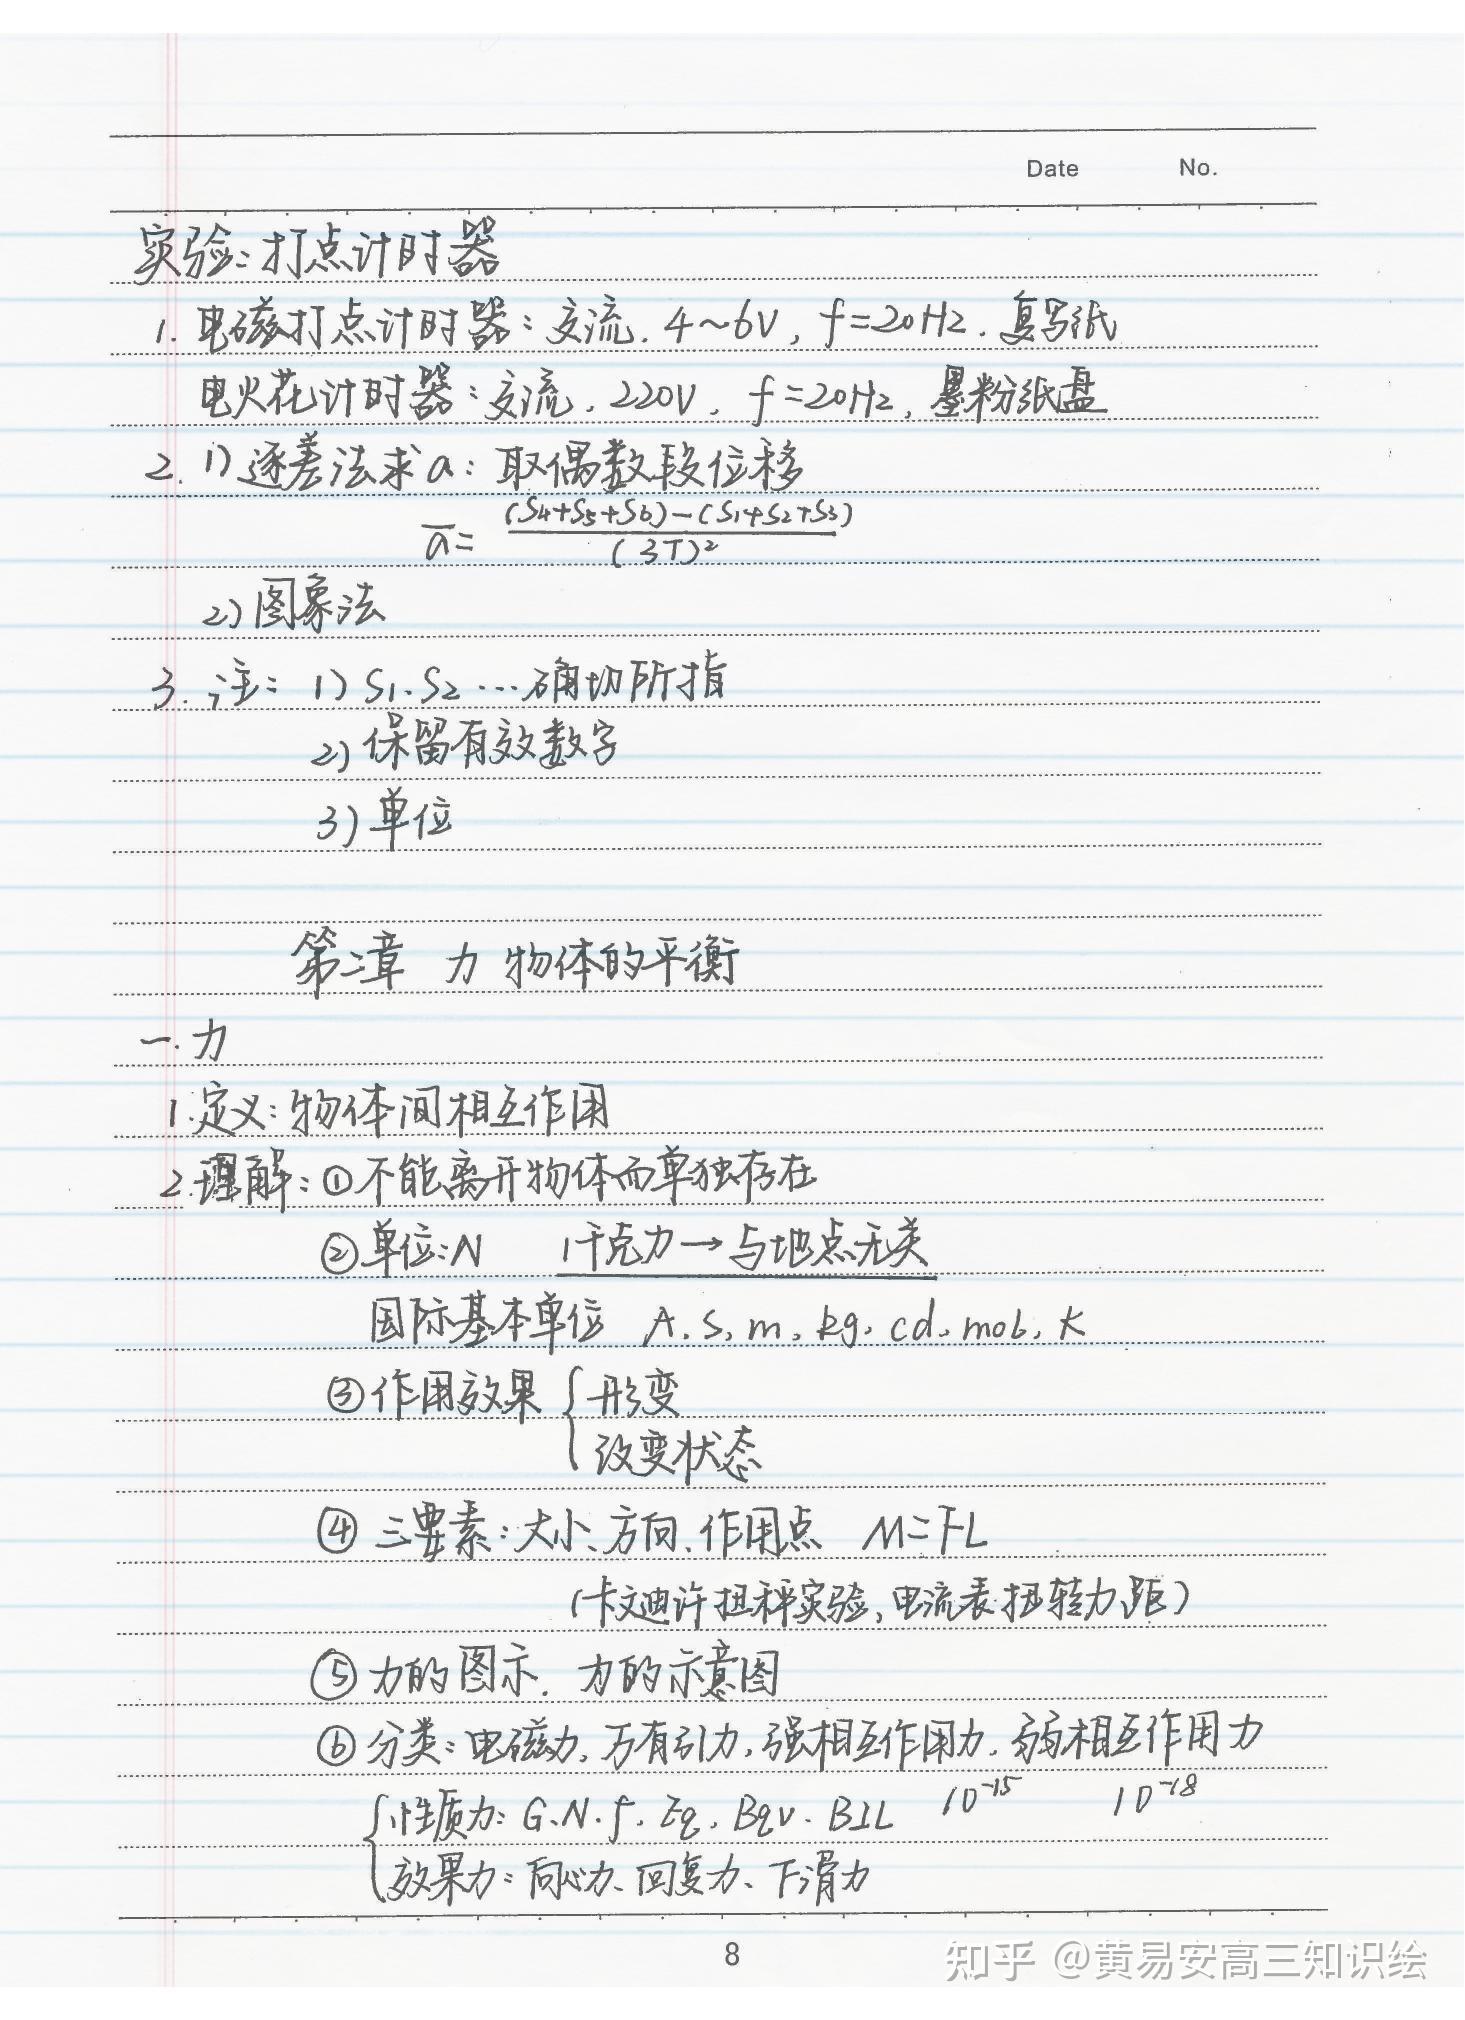 Date No.
实验：打点计时器
1. 电磁打点计时器：交流. 4~6V, f=20Hz. 复写纸
电火花计时器：交流, 220V, f=20Hz, 墨粉纸盘
2. 1) 逐差法求a：取偶数段位移
a̅= (S4+S5+S6)-(S1+S2+S3) / (3T)²
2) 图象法
3. 注：1) S1、S2 …确切所指
2) 保留有效数字
3) 单位
第二章 力 物体的平衡
一. 力
1. 定义：物体间相互作用
2. 理解：①不能离开物体而单独存在
②单位：N 1千克力→与地点无类
国际基本单位 A. s, m, kg, cd, mol, K
③作用效果 { 形变
改变状态
④ 三要素：大小、方向、作用点 M=FL
(卡文迪许扭秤实验, 电流表扭转力距)
⑤ 力的图示. 力的示意图
⑥ 分类：电磁力, 万有引力, 强相互作用力, 弱相互作用力
{ 性质力：G、N、f、Eq, Bqv、BIL 10⁻¹⁵ 10⁻¹⁸
效果力：向心力、回复力、下滑力
8
知乎 @黄易安高三知识绘